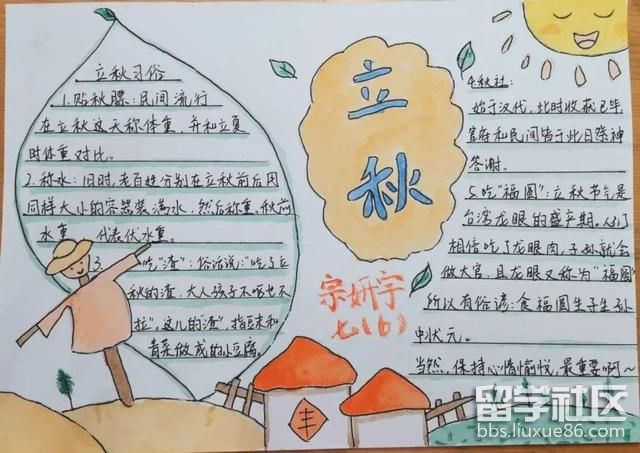 立秋习俗
1.贴秋膘：民间流行
在立秋这天称体重，并和立夏
时体重对比。
2.称水：旧时，老百姓分别在立秋前后用
同样大小的容器装满水，然后称重，秋前
水重 代表伏水重。
3. 吃"渣"：俗话说："吃了立
秋的渣，大人孩子不呕也不
拉"。这儿的"渣"，指豆沫和
青菜做成的小豆腐。
立
秋
宗妍宇
七(6)
4.秋社：
始于汉代，此时收获已毕
官府和民间皆于此日祭神
答谢。
5.吃"福圆"：立秋节气是
台湾龙眼的盛产期。人们
相信吃了龙眼肉，子孙就会
做大官，且龙眼又称为"福圆"
所以有俗谤：食福圆生子生孙
中状元。
当然，保持心情愉悦，最重要啊～
丰
留学社区
bbs.liuxue86.com